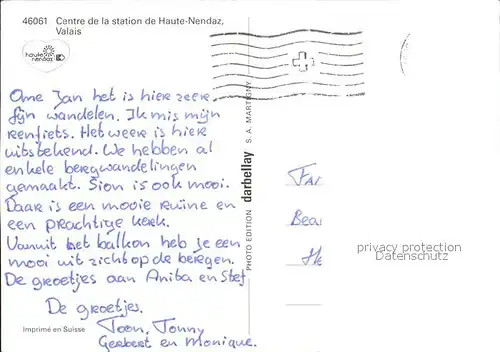 46061 Centre de la station de Haute-Nendaz,
Valais
haute
nendaz
Ome Jan het is hier zeer
fijn wandelen. Ik mis mijn
renfiets. Het weer is hier
uitstekend. We hebben al
enkele bergwandelingen
gemaakt. Sion is ook mooi.
Daar is een mooie ruïne en
een prachtige kerk.
Vanuit het balkon heb je een
mooi uitzicht op de bergen.
De groetjes aan Anita en Stef
De groetjes.
Toon, Tonny
Gerbert en Monique.
Imprimé en Suisse
PHOTO EDITION darbellay S. A. MARTIGNY
Fa
Bea
He
privacy protection
Datenschutz